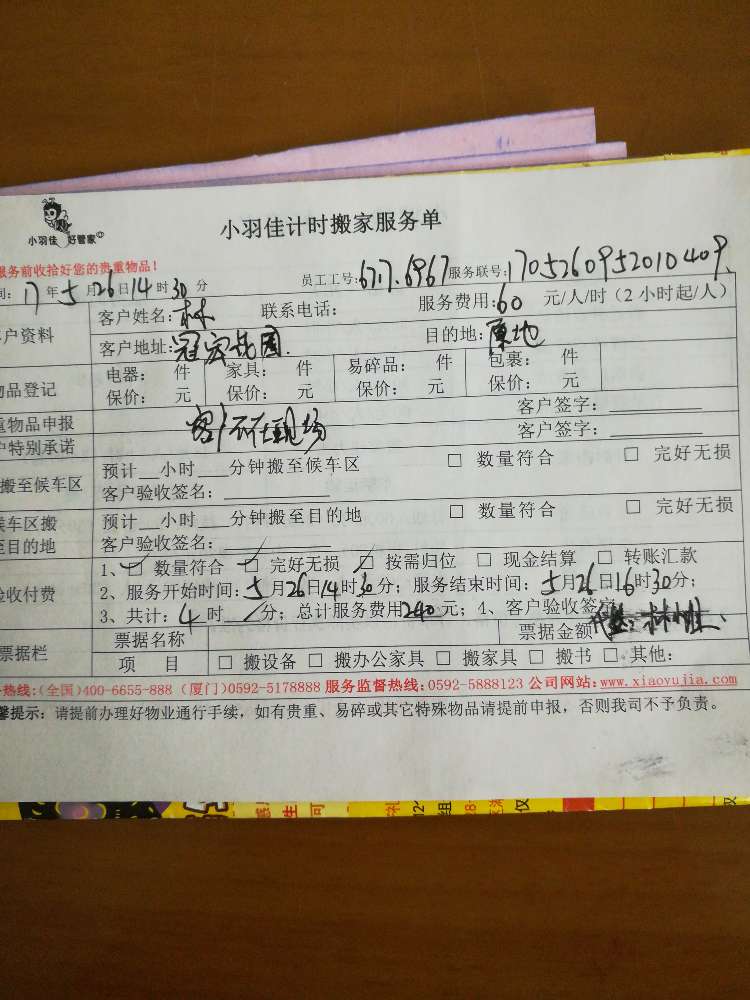 小羽佳 好管家
小羽佳计时搬家服务单
服务前收拾好您的贵重物品!
间: 17 年 5 月 26 日 14 时 30 分 员工工号: 6717.6967 服务联号: 1705260952010409
客户资料 客户姓名: 林 联系电话: 服务费用: 60 元/人/时 (2 小时起/人)
客户地址: 冠宏花园. 目的地: 原地
物品登记 电器: 件 家具: 件 易碎品: 件 包裹: 件
保价: 元 保价: 元 保价: 元 保价: 元
重物品申报 客户不在现场 客户签字:
户特别承诺 客户签字:
搬至候车区 预计__小时___分钟搬至候车区 □ 数量符合 □ 完好无损
客户验收签名:
候车区搬 预计__小时___分钟搬至目的地 □ 数量符合 □ 完好无损
至目的地 客户验收签名:
1、☑ 数量符合 ☑ 完好无损 ☑ 按需归位 □ 现金结算 □ 转账汇款
验收付费 2、服务开始时间: 5 月 26 日 14 时 30 分; 服务结束时间: 5 月 26 日 16 时 30 分;
3、共计: 4 时 / 分; 总计服务费用 240 元; 4、客户验收签字
票据栏 票据名称 票据金额
项 目 □ 搬设备 □ 搬办公家具 □ 搬家具 □ 搬书 □ 其他:
热线:(全国)400-6655-888 (厦门)0592-5178888 服务监督热线:0592-5888123 公司网站:www.xiaoyujia.com
馨提示: 请提前办理好物业通行手续, 如有贵重、易碎或其它特殊物品请提前申报, 否则我司不予负责。